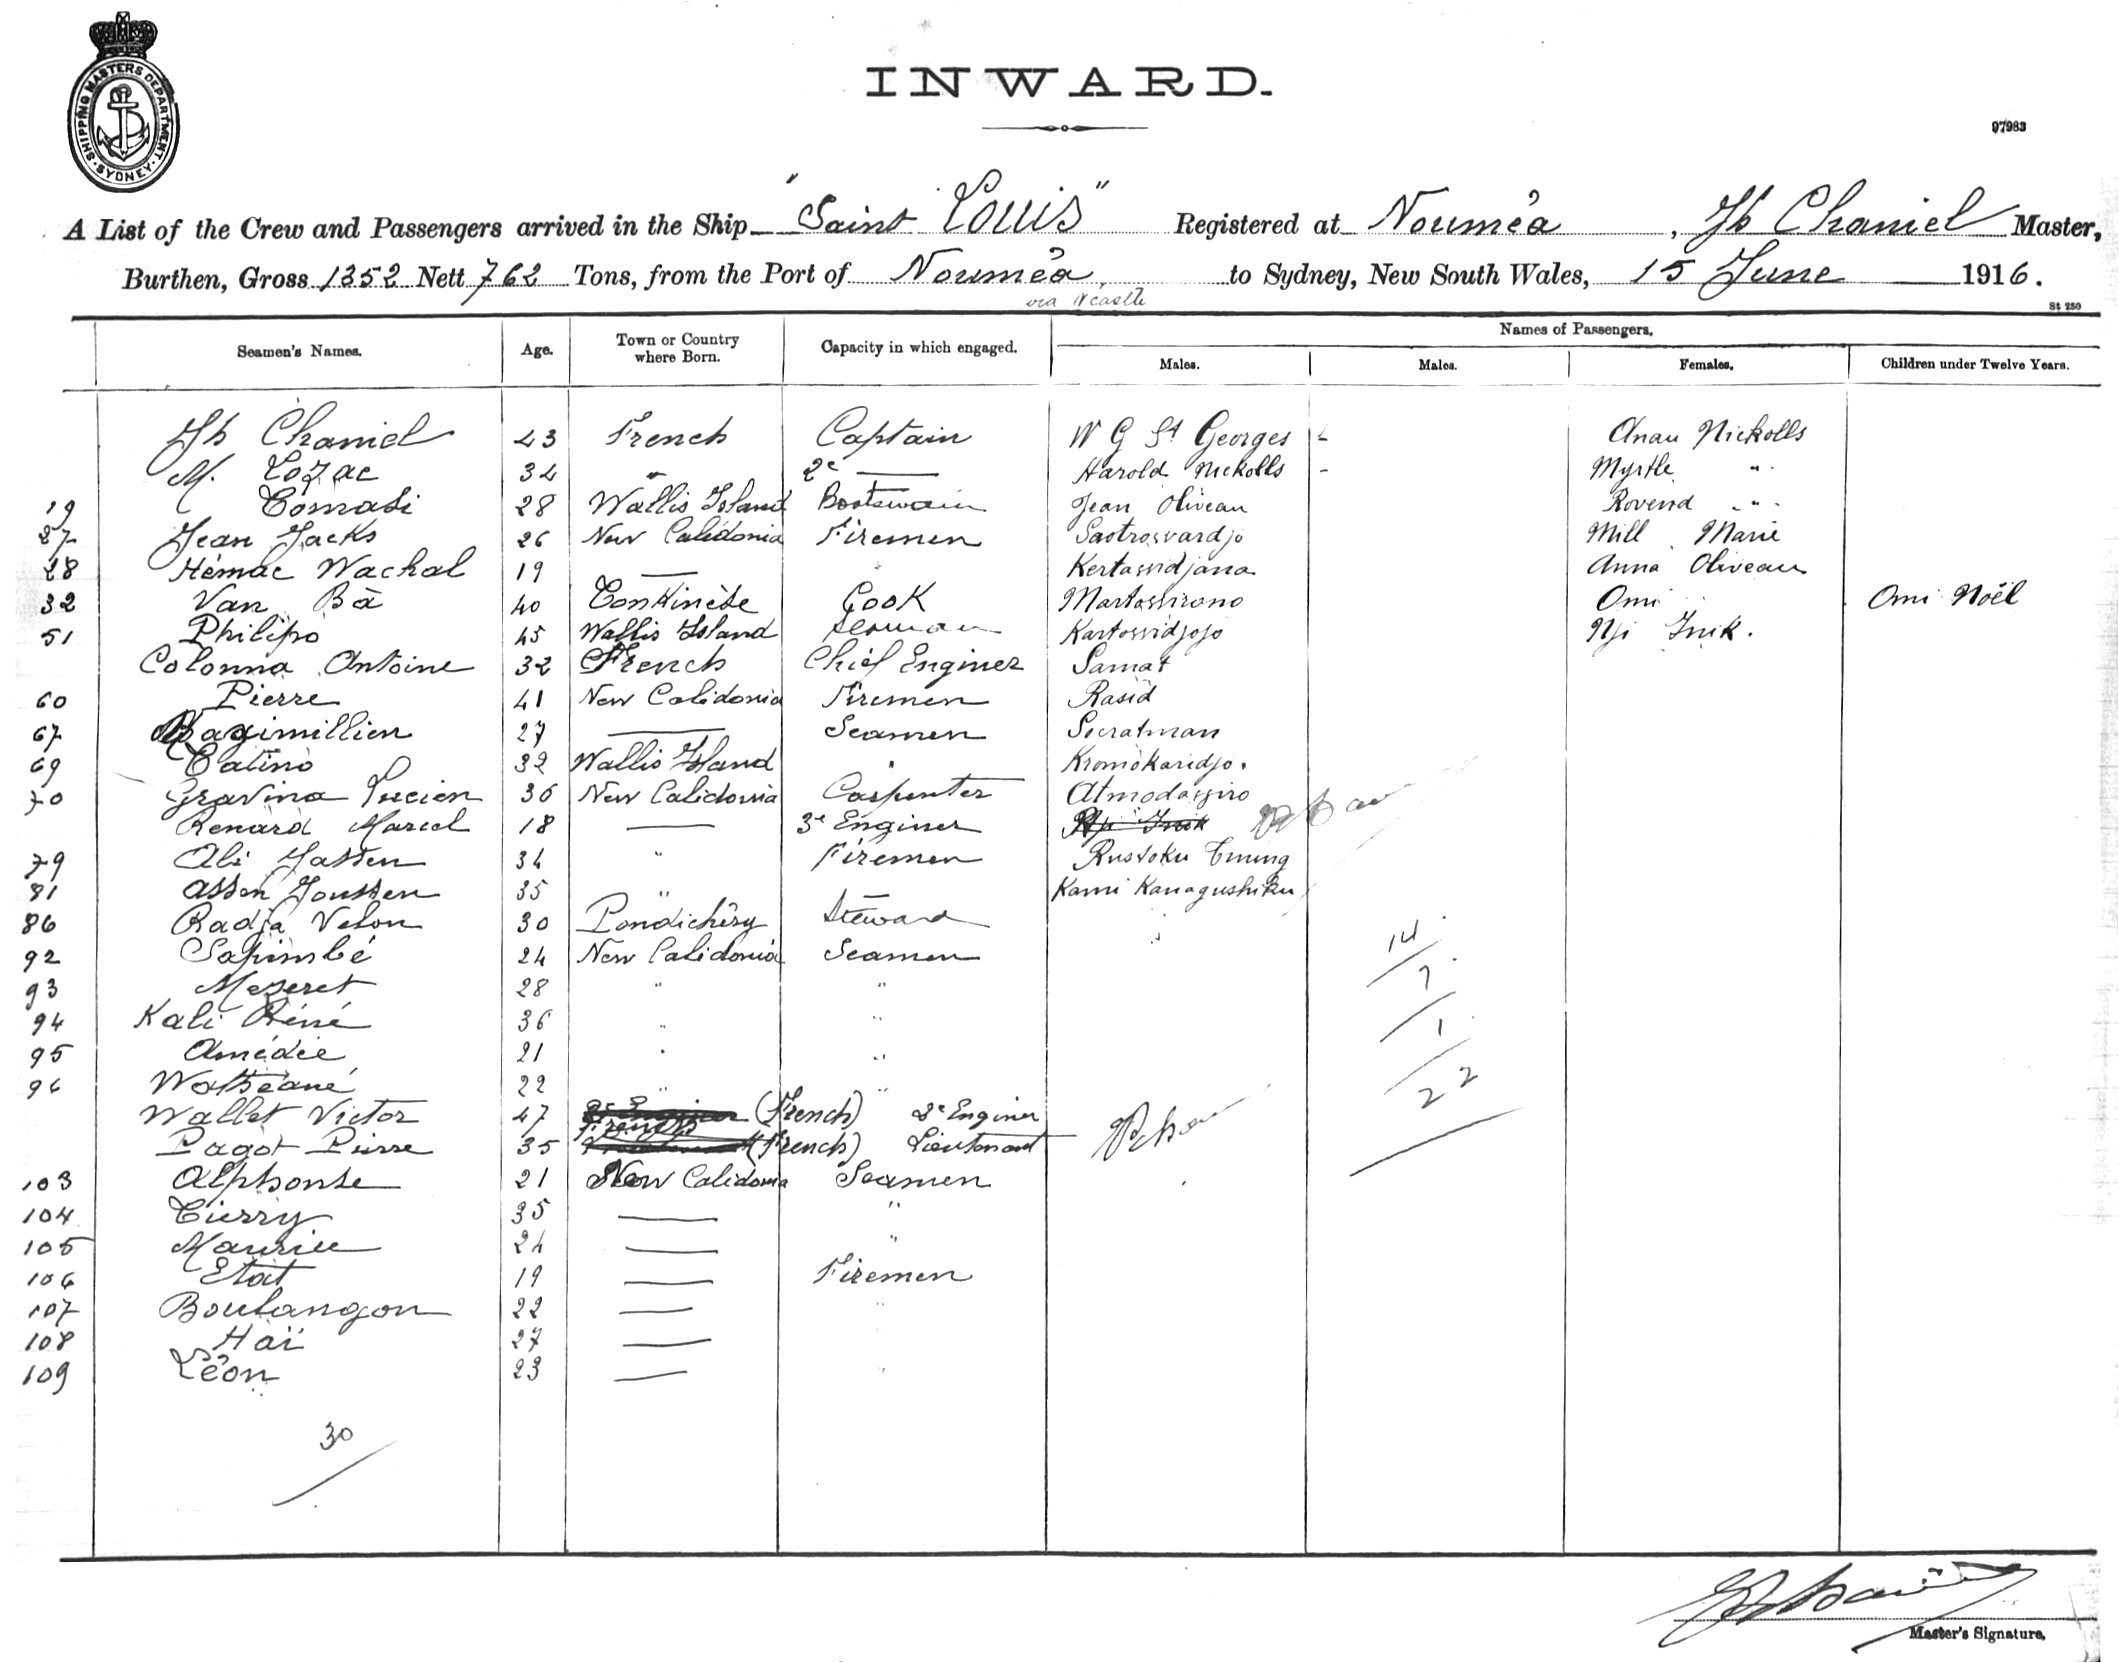 SHIPPING MASTERS DEPARTMENT. SYDNEY
INWARD.
97983
A List of the Crew and Passengers arrived in the Ship "Saint Louis" Registered at Nouméa, Jh Chaniel Master,
Burthen, Gross 1352 Nett 762 Tons, from the Port of Nouméa, to Sydney, New South Wales, 15 June 1916.
via N'castle
St 250
Seamen's Names. Age. Town or Country where Born. Capacity in which engaged. Names of Passengers.
Males. Males. Females. Children under Twelve Years.
Jh Chaniel 43 French Captain W G St Georges - Anau Nickolls
M. Lozac 34 " 2e — Harold Nickolls - Myrtle "
19 Tomasi 28 Wallis Island Bootswain Jean Oliveau Rovend "
27 Jean Jacks 26 New Calédonia Firemen Sastrosvardjo Mill Marie
28 Hémac Wachal 19 — Kertassidjana Anna Oliveau
32 Van Bà 40 Tonkinése Cook Martossirono Omi Omi Noël
51 Philipo 45 Wallis Island Seaman Kartossidjojo Nji Inik.
Colonna Antoine 32 French Chief Enginer Samat
60 Pierre 41 New Calédonia Firemen Rasid
67 Magimillien 27 — Seamen Socratman
69 Catino 32 Wallis Island Kromokaridjo.
70 Gravina Lucien 36 New Calidonia Carpenter Atmodassiro
Renard Marcel 18 — 3e Enginer Nji Inik
79 Ali Jassen 34 " Firemen Rustoku Tmung
81 Assen Joussen 35 " Kami Kanagushiku
86 Radja Velon 30 Pondichéry Steward
92 Sapimbé 24 New Calidonia Seamen
93 Mezeret 28 " "
94 Kali Réné 36 " "
95 Amédée 21 " "
96 Watheané 22 " "
Wallet Victor 47 (French) 2e Enginer
Pagot Pierre 35 French (French) Lieutenant
103 Alphonse 21 New Calidonia Seamen
104 Tierry 35 — "
105 Maurice 24 — "
106 Etat 19 — Firemen
107 Boulangon 22 — "
108 Haï 27 —
109 Léon 23 — "
14
7
1
22
30
Master's Signature.